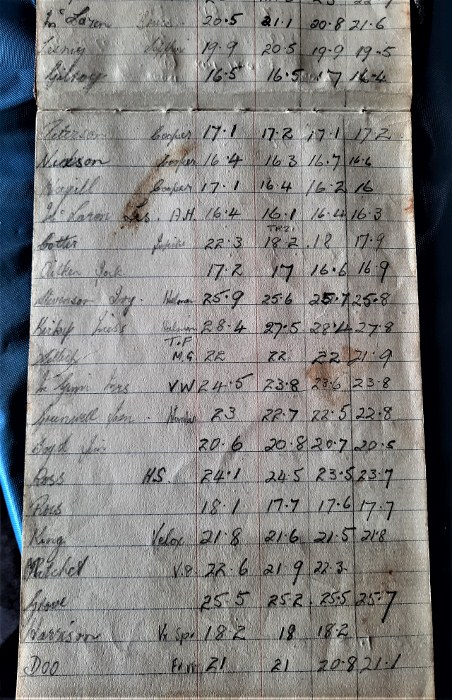 Mc Laren 20.5 21.1 20.8 21.6
19.9 20.5 19.9 19.5
Gilroy 16.5 16.5 17 16.4
Peterson Cooper 17.1 17.2 17.1 17.2
Nickson Cooper 16.4 16.3 16.7 16.6
Magill Cooper 17.1 16.4 16.2 16
Mc Laren Les. A.H. 16.4 16.1 16.4 16.3
TRZ1
Cotter 22.3 18.2 18 17.9
Aitken Jack 17.2 17 16.6 16.9
Stevenson Holman 25.9 25.6 25.7 25.8
28.4 27.5 28.4 27.8
T.F
M.G 22 22 22 21.9
V.W 24.5 23.8 23.6 23.8
23 22.7 22.5 22.8
Boyd Jim 20.6 20.8 20.7 20.5
Ross H.S. 24.1 24.5 23.5 23.7
Ross 18.1 17.7 17.6 17.7
King Velox 21.8 21.6 21.5 21.8
Mitchel V.8 22.6 21.9 22.3
Glove 25.5 25.2 25.5 25.7
Harrison V8 Spe 18.2 18 18.2
Doo 21 21 20.8 21.1